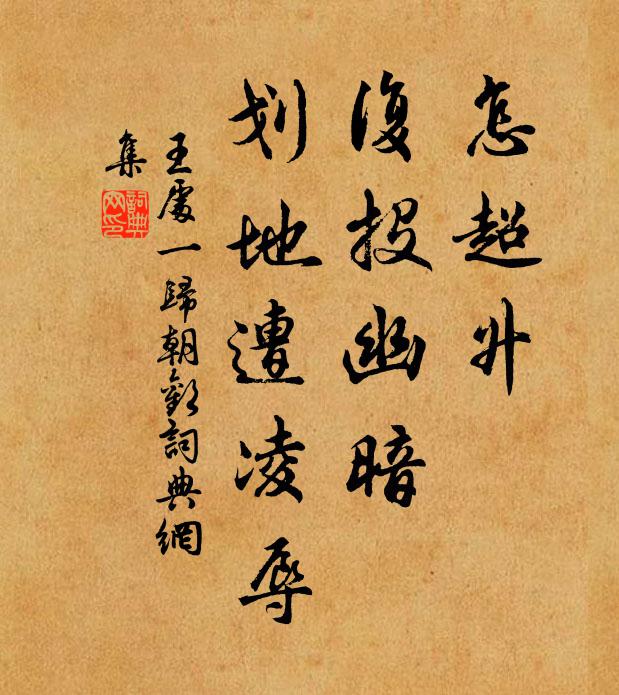 怎超升
復投幽暗
划地遭凌辱
王處一歸朝歡詞典網
集
詞典
网印